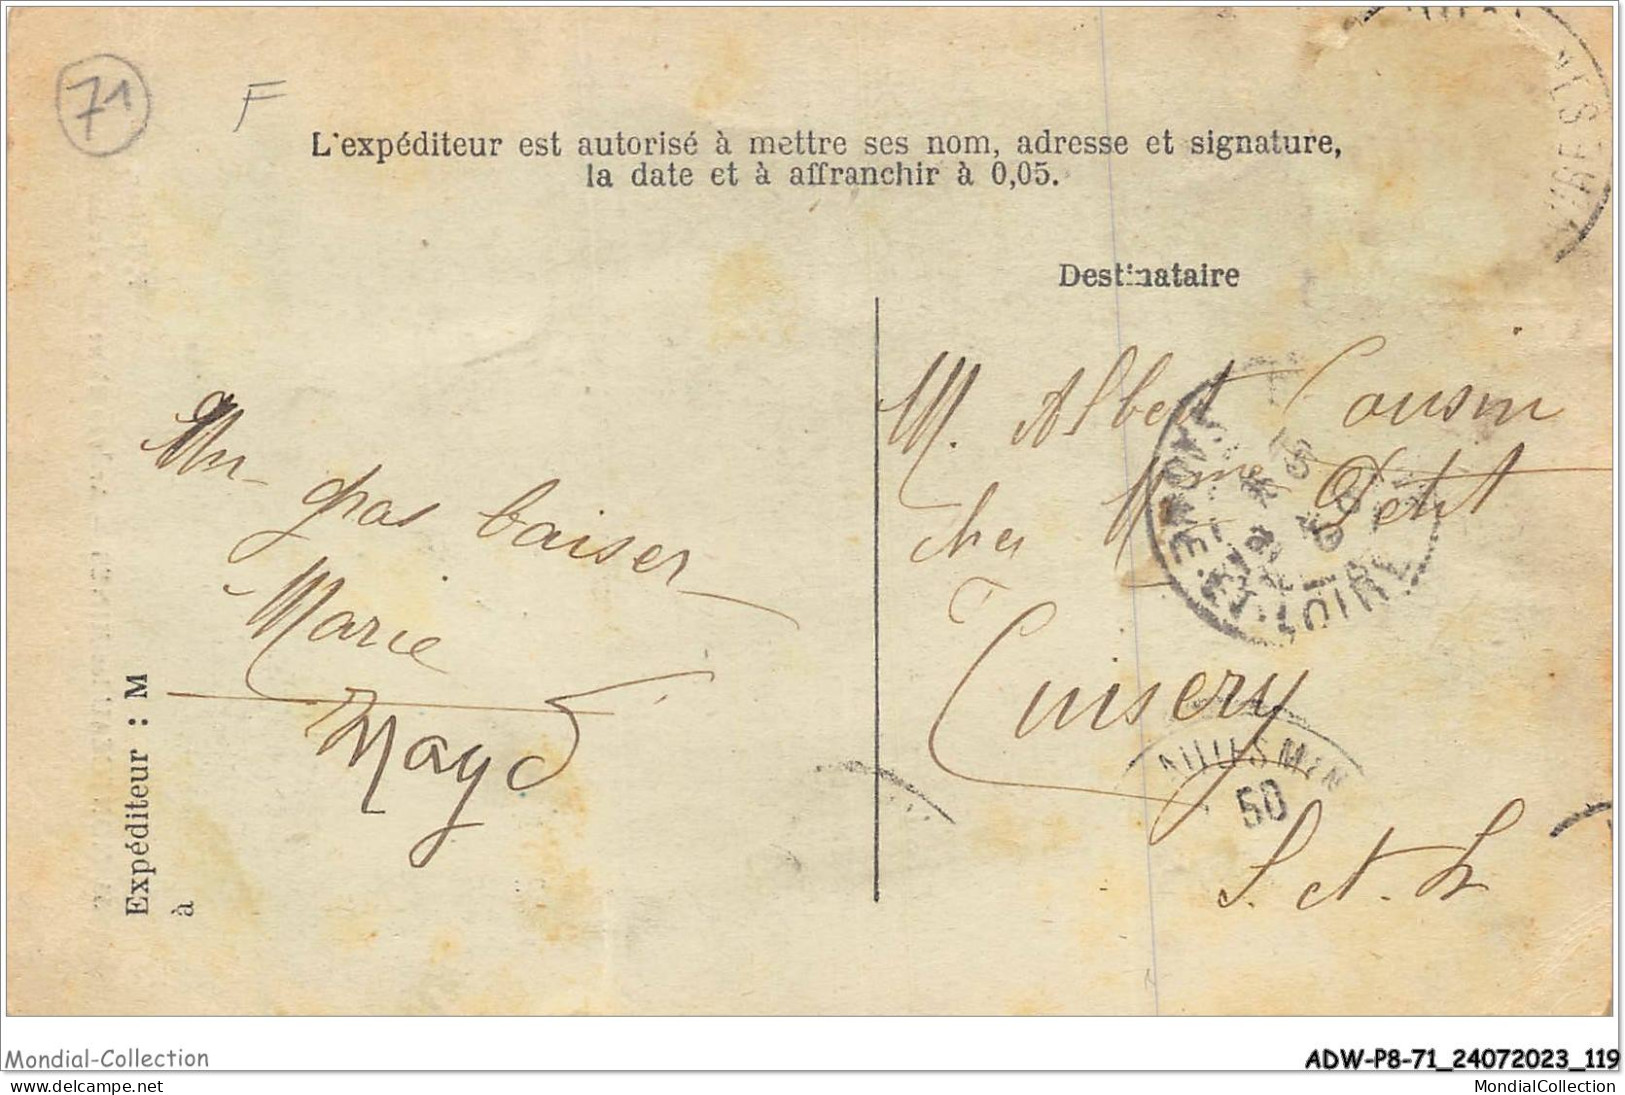 71
F
L'expéditeur est autorisé à mettre ses nom, adresse et signature,
la date et à affranchir à 0,05.
Destinataire
Un gros baiser
Marie
Expéditeur : M
à
M. Albert Cousin
chez Mme Petit
Cuisery
S. et. L
50
Mondial-Collection
ADW-P8-71_24072023_119
delcampe.net
MondialCollection